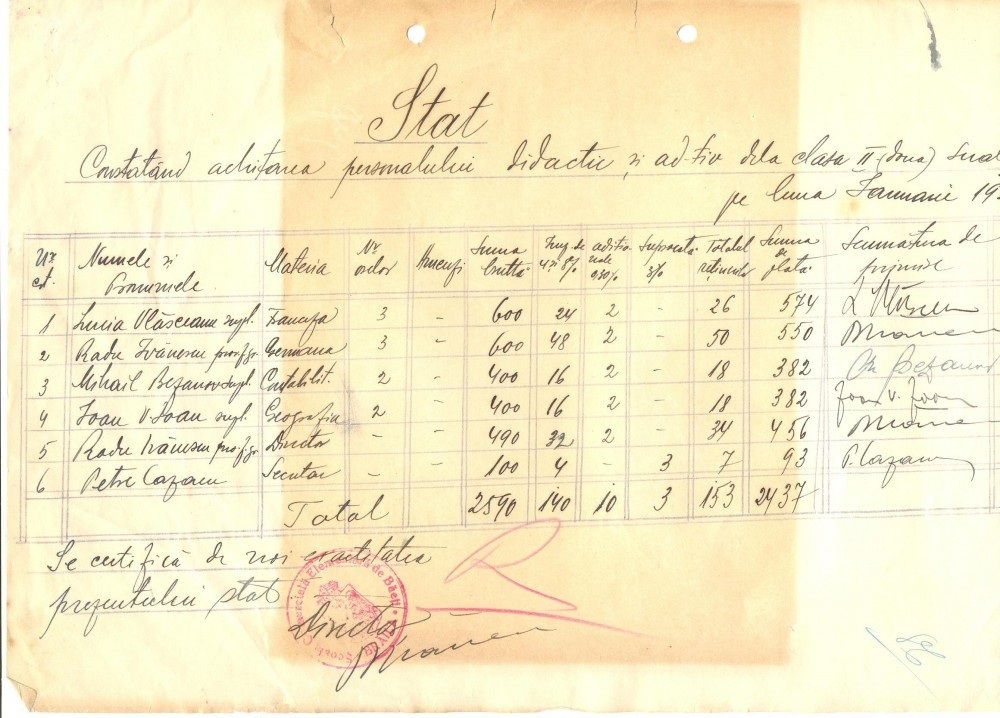 Stat
Constatând achitarea personalului didactic și ad-tiv dela clasa II (doua)
pe luna Ianuarie 19
Nr. crt. Numele și Pronumele Materia Nr. orelor Amenzi Suma brută Imp. de 4 și 8% aditionale 0.30% Suprocota 3% Totalul reținerilor Suma de plata Semnătura de primire
1 Lucia Vlăsceanu supl. Franceza 3 - 600 24 2 - 26 574
2 Radu Ivănescu prof. gr. Germana 3 - 600 48 2 - 50 550
3 Mihail Bezanov supl. Contabilit. 2 - 400 16 2 - 18 382 Bezanov
4 Ioan V. Ioan supl. Geografia 2 - 400 16 2 - 18 382 Ioan V. Ioan
5 Radu Ivănescu prof. gr. Director - - 490 32 2 - 34 456
6 Petre Cazacu Secretar - - 100 4 - 3 7 93 P. Cazacu
Total 2590 140 10 3 153 2437
Se certifică de noi exactitatea
prezentului stat
Director